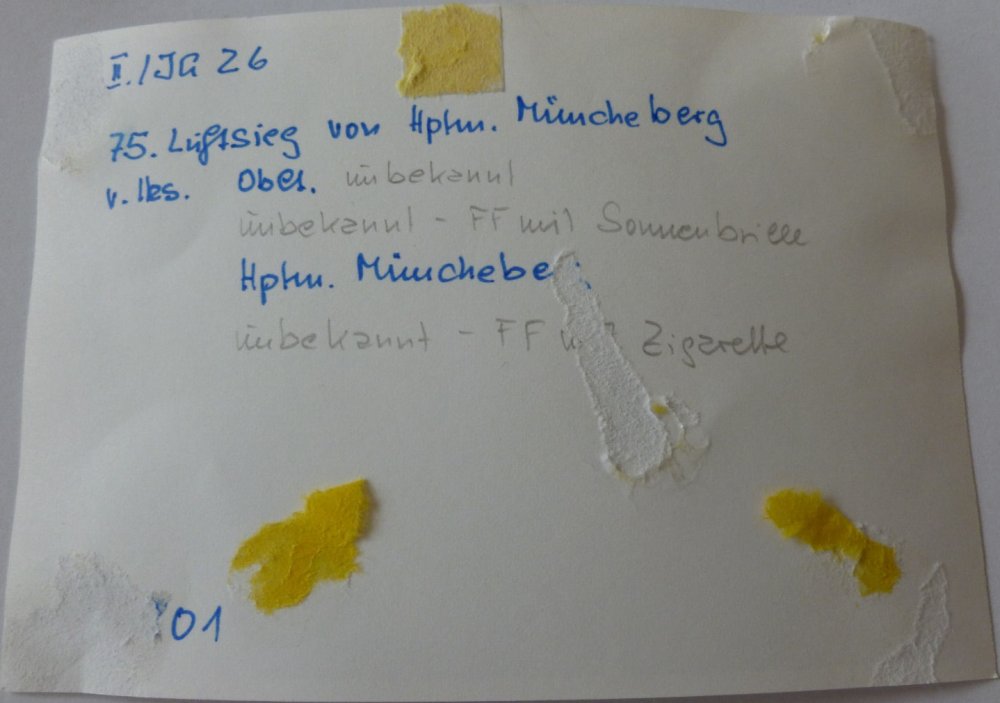 II./JG 26
75. Luftsieg von Hptm. Müncheberg
v. lks. Ober. unbekannt
unbekannt - FF mit Sonnenbrille
Hptm. Müncheber
unbekannt - FF Zigarette
01